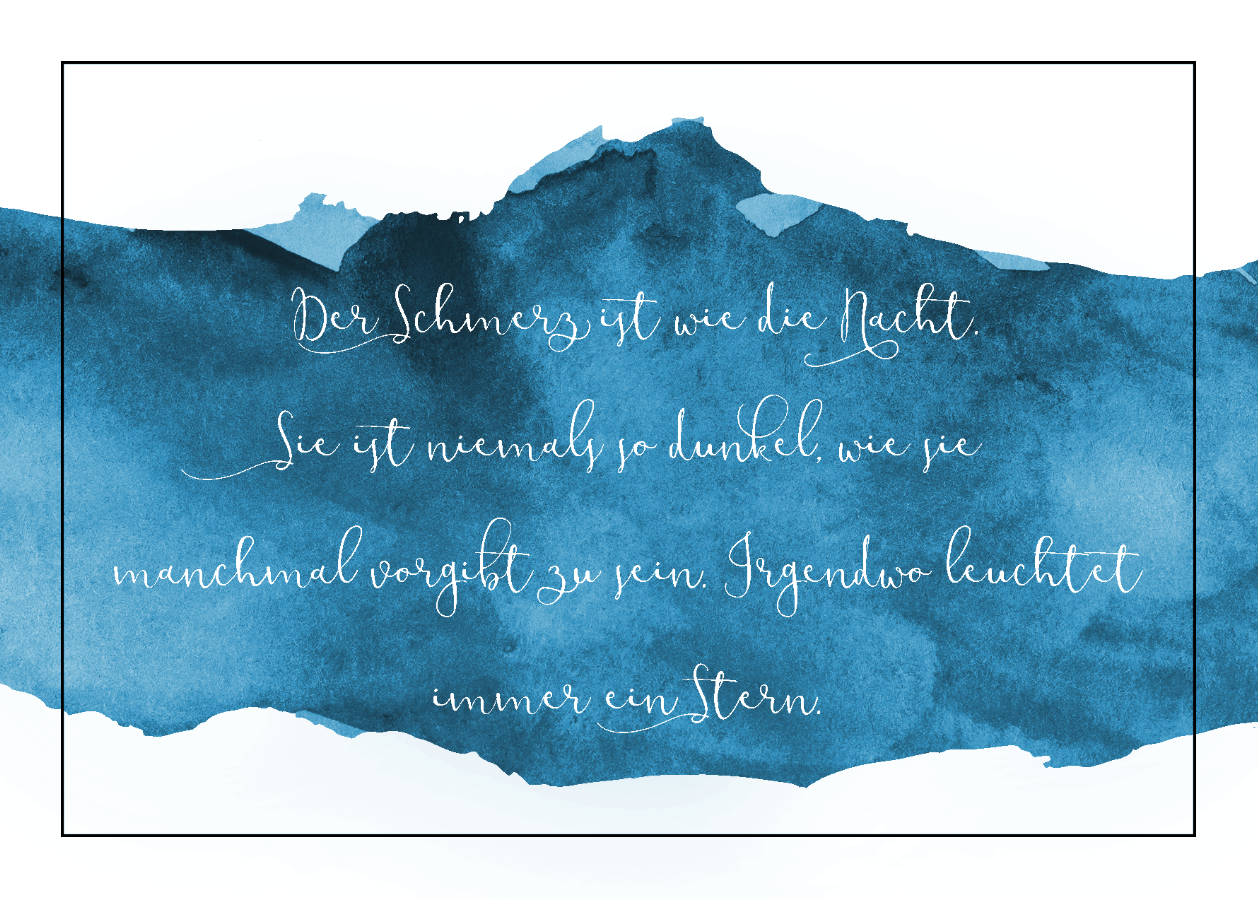 Der Schmerz ist wie die Nacht.
Sie ist niemals so dunkel, wie sie
manchmal vorgibt zu sein. Irgendwo leuchtet
immer ein Stern.